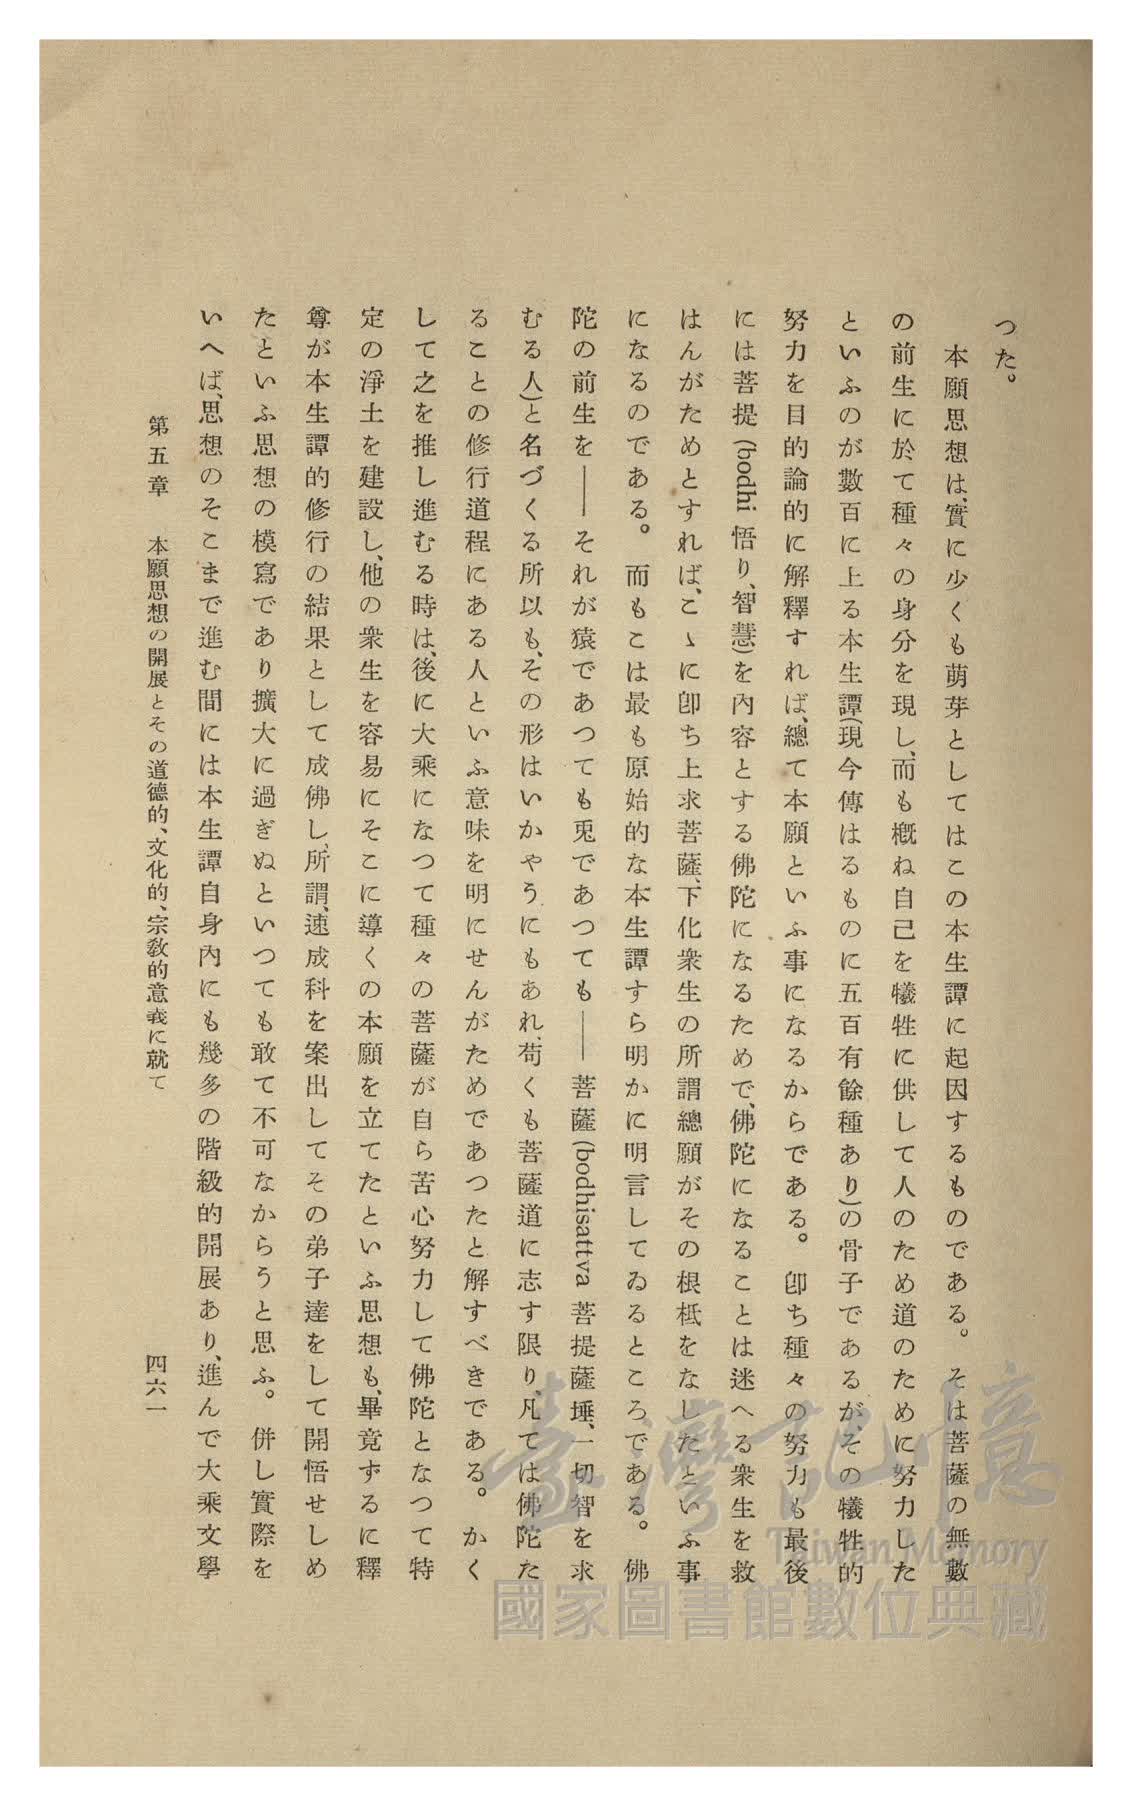 つた。
本願思想は、實に少くも萌芽としてはこの本生譚に起因するものである。そは菩薩の無數
の前生に於て種々の身分を現し、而も槪ね自己を犧牲に供して人のため道のために努力した
といふのが數百に上る本生譚(現今傳はるものに五百有餘種あり)の骨子であるが、その犧牲的
努力を目的論的に解釋すれば、總て本願といふ事になるからである。卽ち種々の努力も最後
には菩提(bodhi 悟り、智慧)を內容とする佛陀になるためで、佛陀になることは迷へる衆生を救
はんがためとすれば、こゝに卽ち上求菩薩、下化衆生の所謂總願がその根柢をなしたといふ事
になるのである。而もこは最も原始的な本生譚すら明かに明言してゐるところである。佛
陀の前生を——それが猿であつても兎であつても——菩薩(bodhisattva 菩提薩埵、一切智を求
むる人)と名づくる所以も、その形はいかやうにもあれ、苟くも菩薩道に志す限り、凡ては佛陀た
ることの修行道程にある人といふ意味を明にせんがためであつたと解すべきである。かく
して之を推し進むる時は、後に大乘になつて種々の菩薩が自ら苦心努力して佛陀となつて特
定の淨土を建設し、他の衆生を容易にそこに導くの本願を立てたといふ思想も、畢竟ずるに釋
尊が本生譚的修行の結果として成佛し、所謂、速成科を案出してその弟子達をして開悟せしめ
たといふ思想の模寫であり擴大に過ぎぬといつても敢て不可なからうと思ふ。併し實際を
いへば、思想のそこまで進む間には本生譚自身內にも幾多の階級的開展あり、進んで大乘文學
第五章　本願思想の開展とその道德的、文化的、宗敎的意義に就て　四六一
臺灣記憶
Taiwan Memory
國家圖書館數位典藏